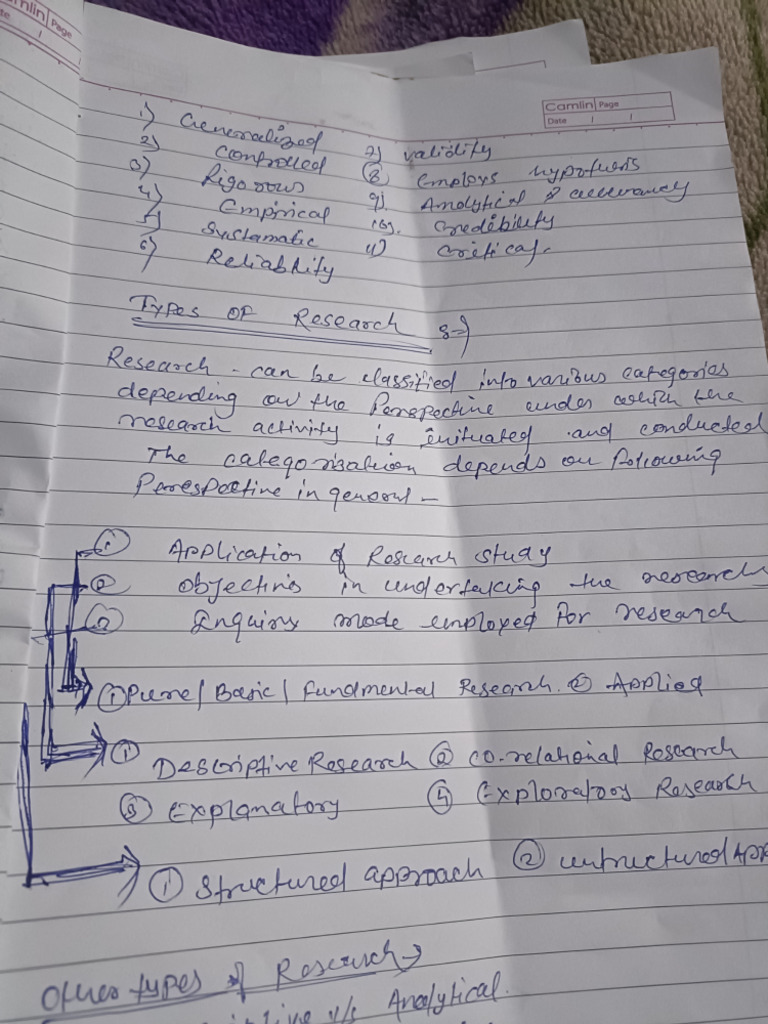 Camlin Page
Date / /
mlin Page
te /
1) Generalized
2) controlled
3) Rigorous
4) Empirical
5) Systamatic
6) Reliability
7) validity
8 Employs hypothesis
9) Analytical & accuracy
10). credibility
11) critical.
Types of Research :-
Research - can be classified into various categories
depending on the Perespective under which the
research activity is and conducted
The categorisation depends on following
Perespective in general -
1 Application of Research study
2 objectives in undertaking the research
3 Enquiry mode employed for research
1 Pure / Basic / Fundmental Research. 2 Applied
1 Descriptive Research 2 co-relational Research
3 Explanatory 4 Exploratory Research
1 Structured approach 2 untructured App
Other types of Research →
v/s Analytical.